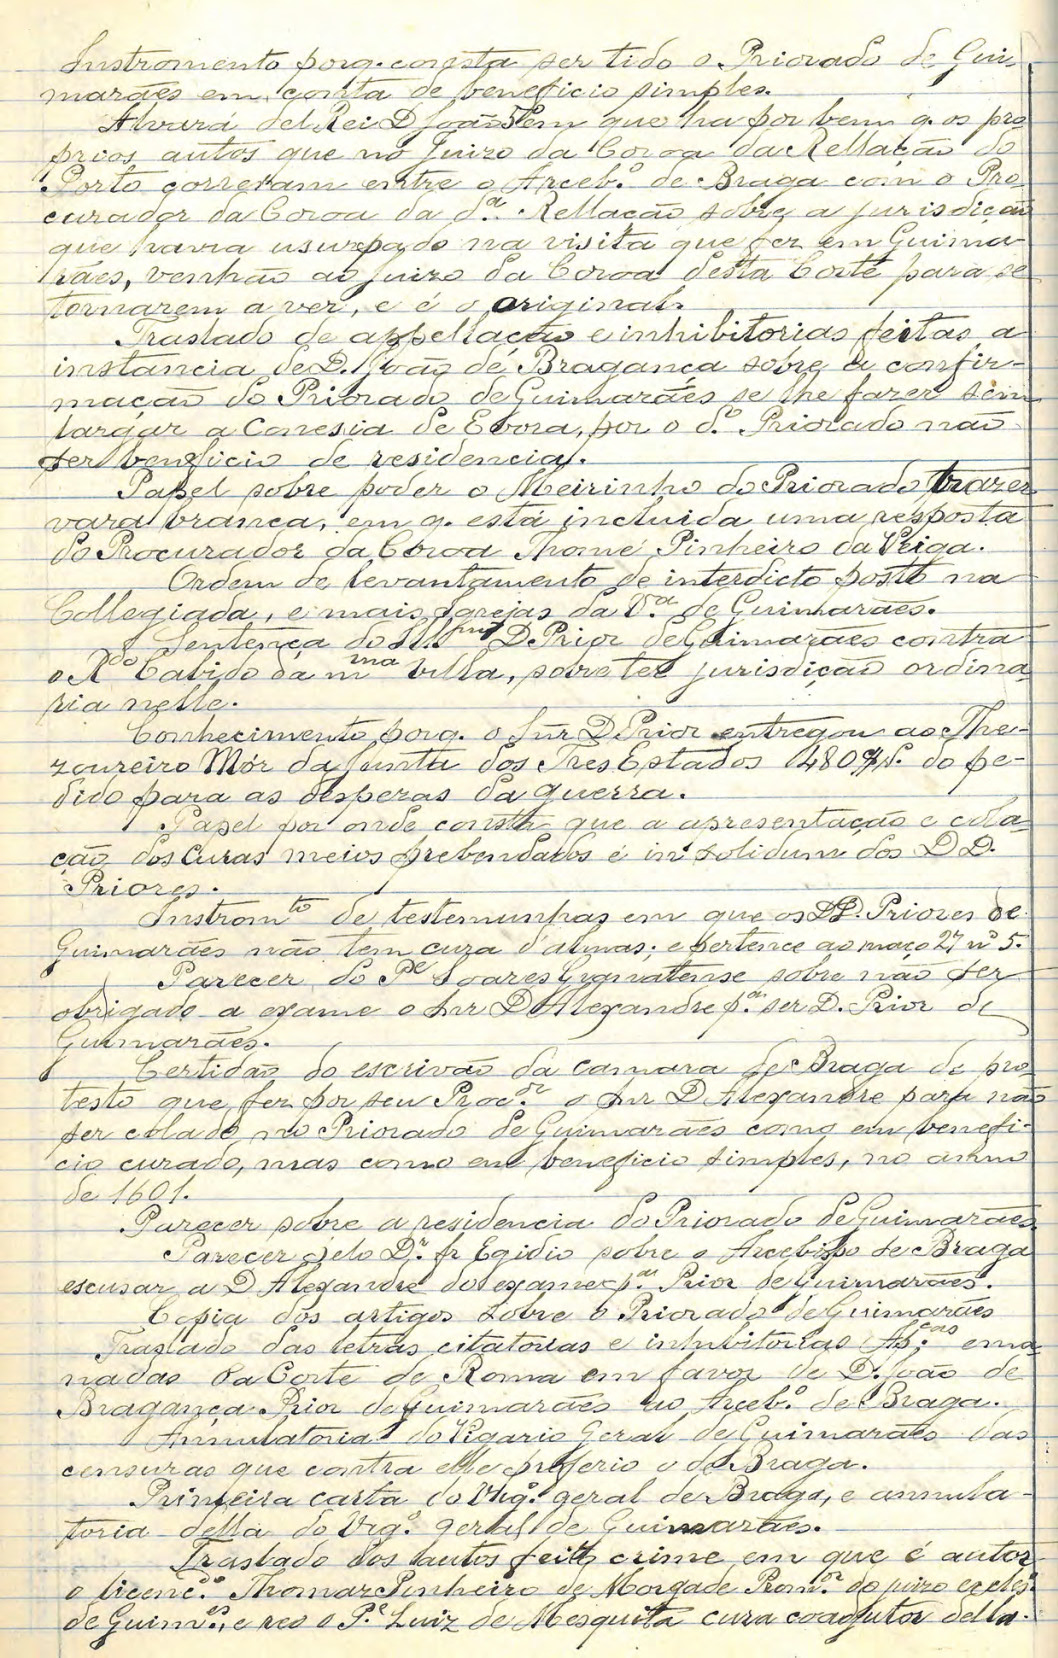 Instromento porq. consta ser tido o Priorado de Gui-
marães em conta de beneficio simples.
Alvará del Rei D João 5º em que ha por bem q. os pro
prios autos que no Juizo da Coroa da Rellação do
Porto correram entre o Arceb.º de Braga com o Pro
curador da Coroa da d.ª Rellação sobre a jurisdição
que havia usurpado na visita que fez em Guima-
rães, venhão ao juizo da Coroa desta Corte para se
tornarem a ver, e é o original.
Traslado de appellação e inhibitorias feitas a
instancia de D. João de Bragança sobre a confir-
mação do Priorado de Guimarães se lhe fazer sem
largar a Conesia de Evora, por o d.º Priorado não
ser beneficio de residencia.
Papel sobre poder o Meirinho do Priorado trazer
vara branca, em q. está incluida uma resposta
do Procurador da Coroa Thomé Pinheiro da Veiga.
Ordem de levantamento de interdicto posto na
Collegiada, e mais igrejas da V.ª de Guimarães.
Sentença do Ill.mo D. Prior de Guimarães contra
o R.do Cabido da m.ma villa, sobre ter jurisdição ordina
ria nelle.
Conhecimento porq. o Snr D Prior entregou ao The-
zoureiro Mór da Junta dos Tres Estados 480$ do pe-
dido para as despezas da guerra.
Papel por onde consta que a apresentação e cola-
ção dos Curas meios prebendados é in solidum dos D D.
Priores.
Instrom.to de testemunhas em que os DD. Priores de
Guimarães não tem cura d'almas; e pertence ao maço 27 nº 5.
Parecer do P.e Soares Granatense sobre não ser
obrigado a exame o Snr D Alexandre p.ª ser D. Prior de
Guimarães.
Certidão do escrivão da camara de Braga do pro
testo que fez por seu Proc.or o Snr D Alexandre para não
ser colado no Priorado de Guimarães como em benefi-
cio curado, mas como em beneficio simples, no anno
de 1601.
Parecer sobre a residencia do Priorado de Guimarães
Parecer pelo D.r fr Egidio sobre o Arcebispo de Braga
escusar a D Alexandre do exame p.ª Prior de Guimarães.
Copia dos artigos sobre o Priorado de Guimarães
Traslado das letras citatorias e inhibitorias Ap.cas ema
nadas da Corte de Roma em favor de D. João de
Bragança Prior de Guimarães ao Arceb.º de Braga.
Annulatoria do Vigario Geral de Guimarães das
censuras que contra elle proferio o de Braga.
Primeira carta do Vig.º geral de Braga, e annula-
toria della do Vig.º geral de Guimarães.
Traslado dos autos feito crime em que é autor
o licenc.do Thomaz Pinheiro de Morgade Prom.or do juizo eccles.
de Guim.es, e reo o P.e Luiz de Mesquita cura coadjutor della.